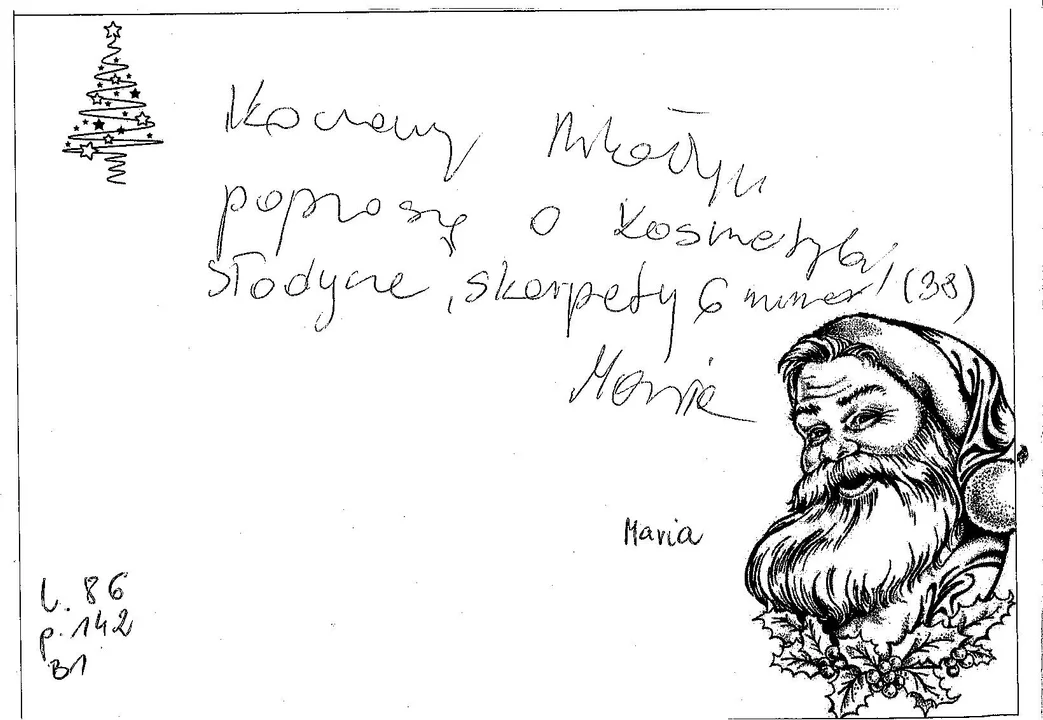 Kochany Mikołaju
poproszę o kosmetyki,
słodycze, skarpety 6 numer (38)
Maria
Maria
l. 86
p. 142
B1